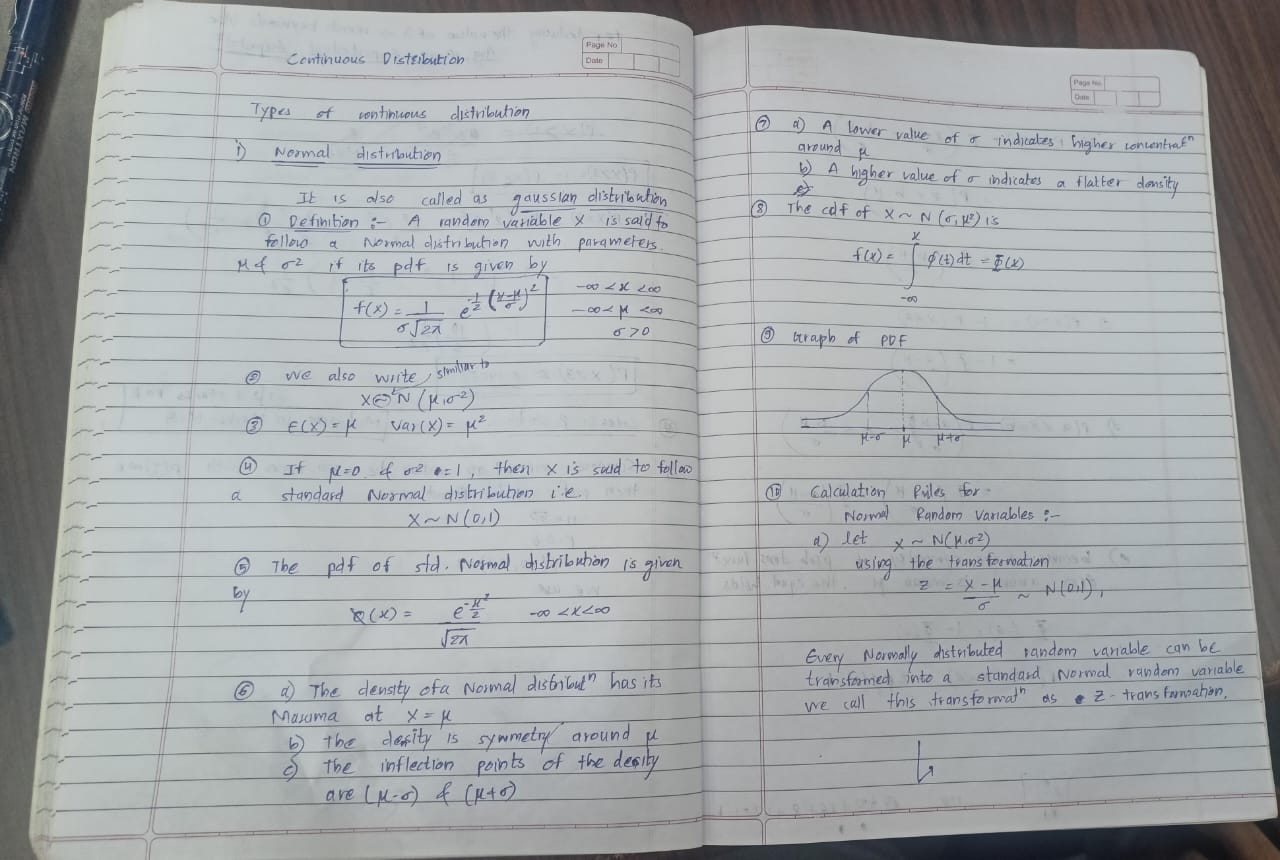 Page No
Date
Continuous Distribution
Types of continuous distribution
i) Normal distribution
It is also called as gaussian distribution
① Definition :- A random variable X is said to
follow a Normal distribution with parameters
μ & σ² if its pdf is given by
f(x) = 1/(σ√2π) e^(-1/2 ((x-μ)/σ)²) -∞ < x < ∞
-∞ < μ < ∞
σ > 0
② We also write, similiar to
X ~ N (μ, σ²)
③ E(X) = μ Var(X) = μ²
④ If μ=0 & σ² = 1, then X is said to follow
a standard Normal distribution i.e.
X ~ N(0,1)
⑤ The pdf of std. Normal distribution is given
by
Q(x) = e^(-x²/2)/√2π -∞ < x < ∞
⑥ a) The density of a Normal distributⁿ has its
Maxima at x = μ
b) The density is symmetry around μ
c) The inflection points of the desity
are (μ-σ) & (μ+σ)
Page No
Date
⑦ a) A lower value of σ indicates higher concentratⁿ
around μ
b) A higher value of σ indicates a flatter density
⑧ The cdf of X ~ N (σ, μ²) is
f(x) = ∫_{-∞}^{x} φ(t)dt = Φ(x)
⑨ Graph of PDF
μ-σ μ μ+σ
⑩ Calculation Rules for
Normal Random Variables :-
a) let X ~ N(μ, σ²)
using the transformation
Z = (X - μ)/σ ~ N(0,1),
Every Normally distributed random variable can be
transformed into a standard Normal random variable
we call this transformatⁿ as Z-transformation.